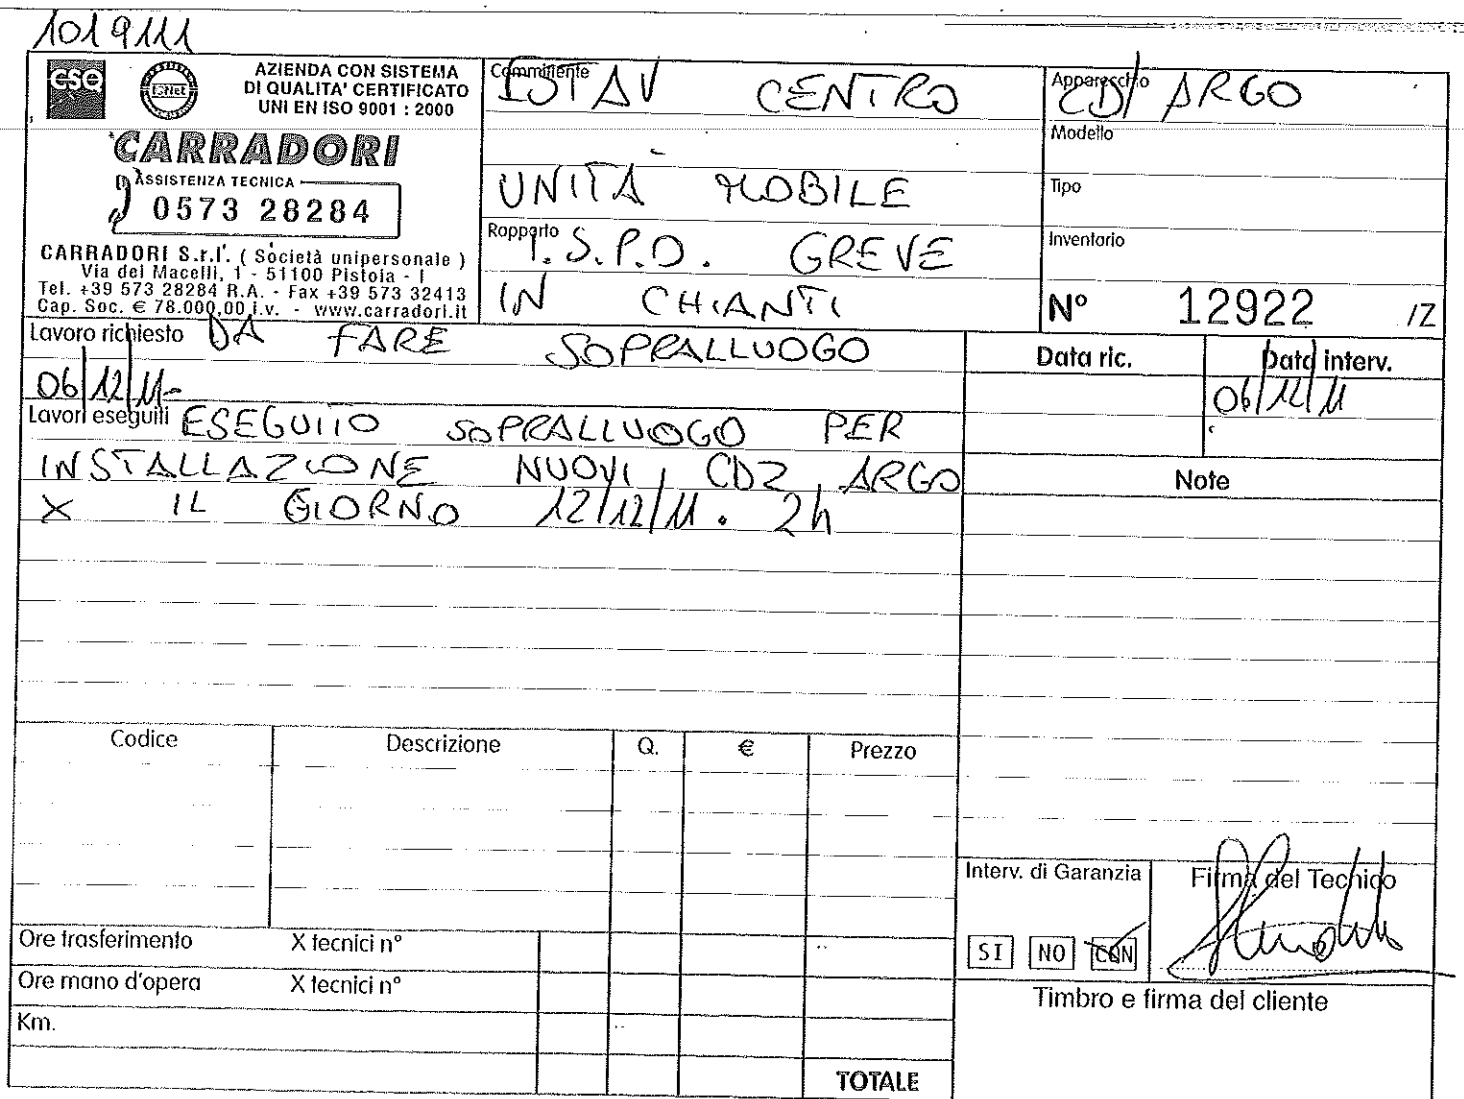 1019111
CSQ
IQNet
AZIENDA CON SISTEMA
DI QUALITA' CERTIFICATO
UNI EN ISO 9001 : 2000
CARRADORI
ASSISTENZA TECNICA
0573 28284
CARRADORI S.r.l. ( Società unipersonale )
Via dei Macelli, 1 - 51100 Pistoia - I
Tel. +39 573 28284 R.A. - Fax +39 573 32413
Cap. Soc. € 78.000,00 i.v. - www.carradori.it
Committente
ESTAV CENTRO
UNITÀ MOBILE
Rapporto
I.S.P.O. GREVE
IN CHIANTI
Apparecchio
CDZ ARGO
Modello
Tipo
Inventario
N° 12922 /Z
Lavoro richiesto DA FARE SOPRALLUOGO
06/12/11-
Data ric.
Data interv.
06/12/11
Lavori eseguiti ESEGUITO SOPRALLUOGO PER
INSTALLAZIONE NUOVI CDZ ARGO
X IL GIORNO 12/12/11. 2h
Note
Codice Descrizione Q. € Prezzo
Interv. di Garanzia
SI NO CON
Firma del Tecnico
Ore trasferimento X tecnici n°
Ore mano d'opera X tecnici n°
Km.
TOTALE
Timbro e firma del cliente